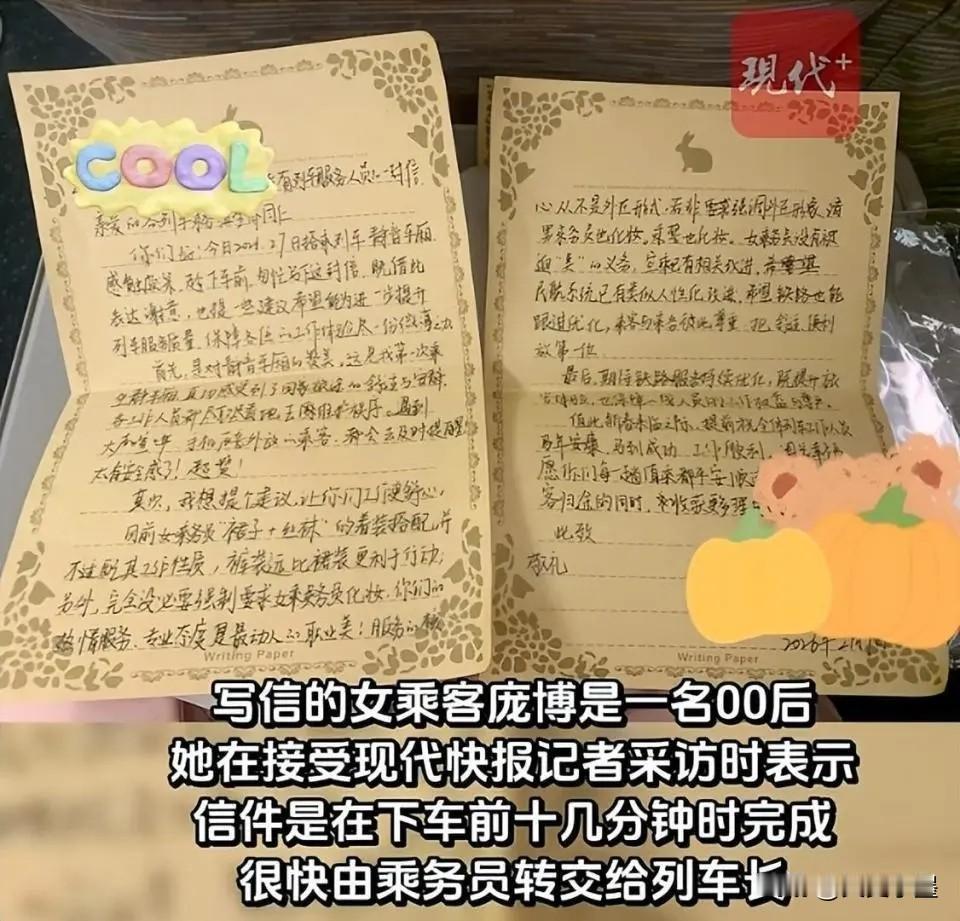 現代+
COOL
有列车服务人员的一封信
亲爱的
你们好：今日
搭乘列车静音车厢
感触颇深，在下车前，匆忙写下这封信，既借此
表达谢意，也提一些建议希望能为进一步提升
列车服务质量、保障各位的工作体验尽一份微薄之力
首先，是对静音车厢的赞美，这是我第一次乘
真切感受到了
的舒适与安静
各工作人员都尽职尽责地去维护秩序。遇到
手机声音外放的乘客，都会去及时提醒
太有安全感了！超赞！
其次，我想提个建议，让你们工作更舒心。
目前女乘务员“裙子+丝袜”的着装搭配，并
不适配其工作性质，裤装远比裙装更利于行动；
另外，完全没必要强制要求女乘务员化妆，你们的
热情服务、专业态度是最动人的职业美！服务的核
Writing Paper
心从不是外在形式，若非要强调外在形象，请
男乘务员也化妆，乘警也化妆。女乘务员没有被
迫“美”的义务，
已有相关改进，
民航系统已有类似人性化改进，希望铁路也能
跟进优化，乘客与乘务彼此尊重，把安全、便利
放第一位
最后，期待铁路服务持续优化，既提升旅
客体验，也保障一线人员的工作权益与尊严
值此新春来临之际，提前祝全体列车工作人员
马年安康，马到成功，工作顺利，
愿你们每一趟值乘都平安
客归途的同时，
收获更多理
此致
敬礼
2026年
Writing Paper
写信的女乘客庞博是一名00后
她在接受现代快报记者采访时表示
信件是在下车前十几分钟时完成
很快由乘务员转交给列车长